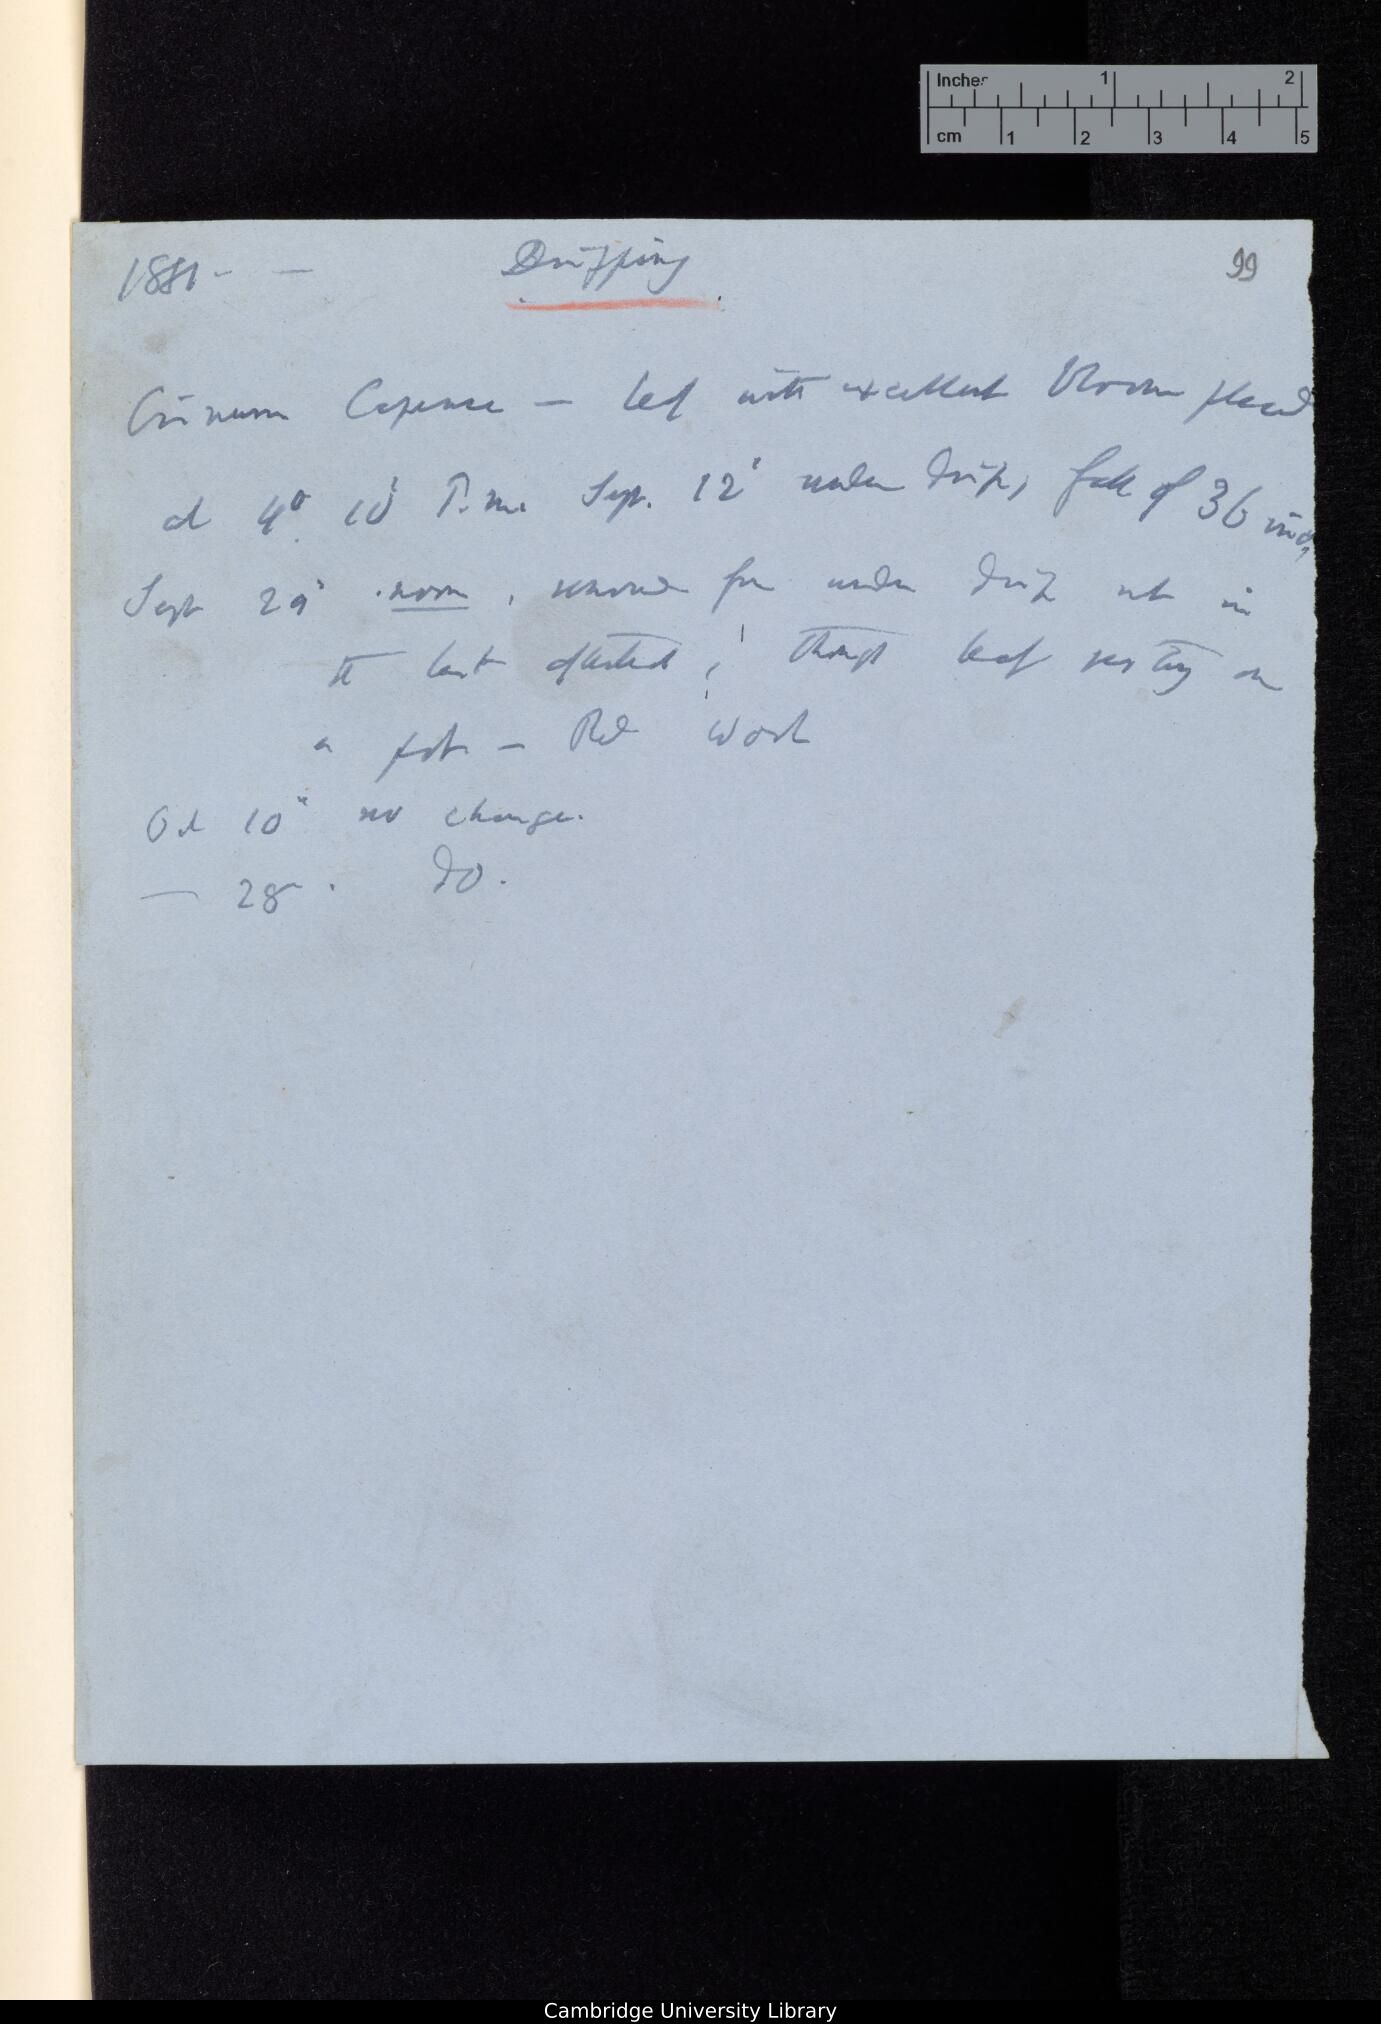 Inches 1 2
cm 1 2 3 4 5
1881 — Dripping 99
Crinum Capense — leaf with excellent bloom placed
at 4° 10' P.m. Sept. 12' under drip, fall of 36 inch,
Sept 29' noon, removed from under drip not in
the least affected, though leaf resting on
a pot — Red Wool
Oct 10" no change.
— 28 . Do.
Cambridge University Library